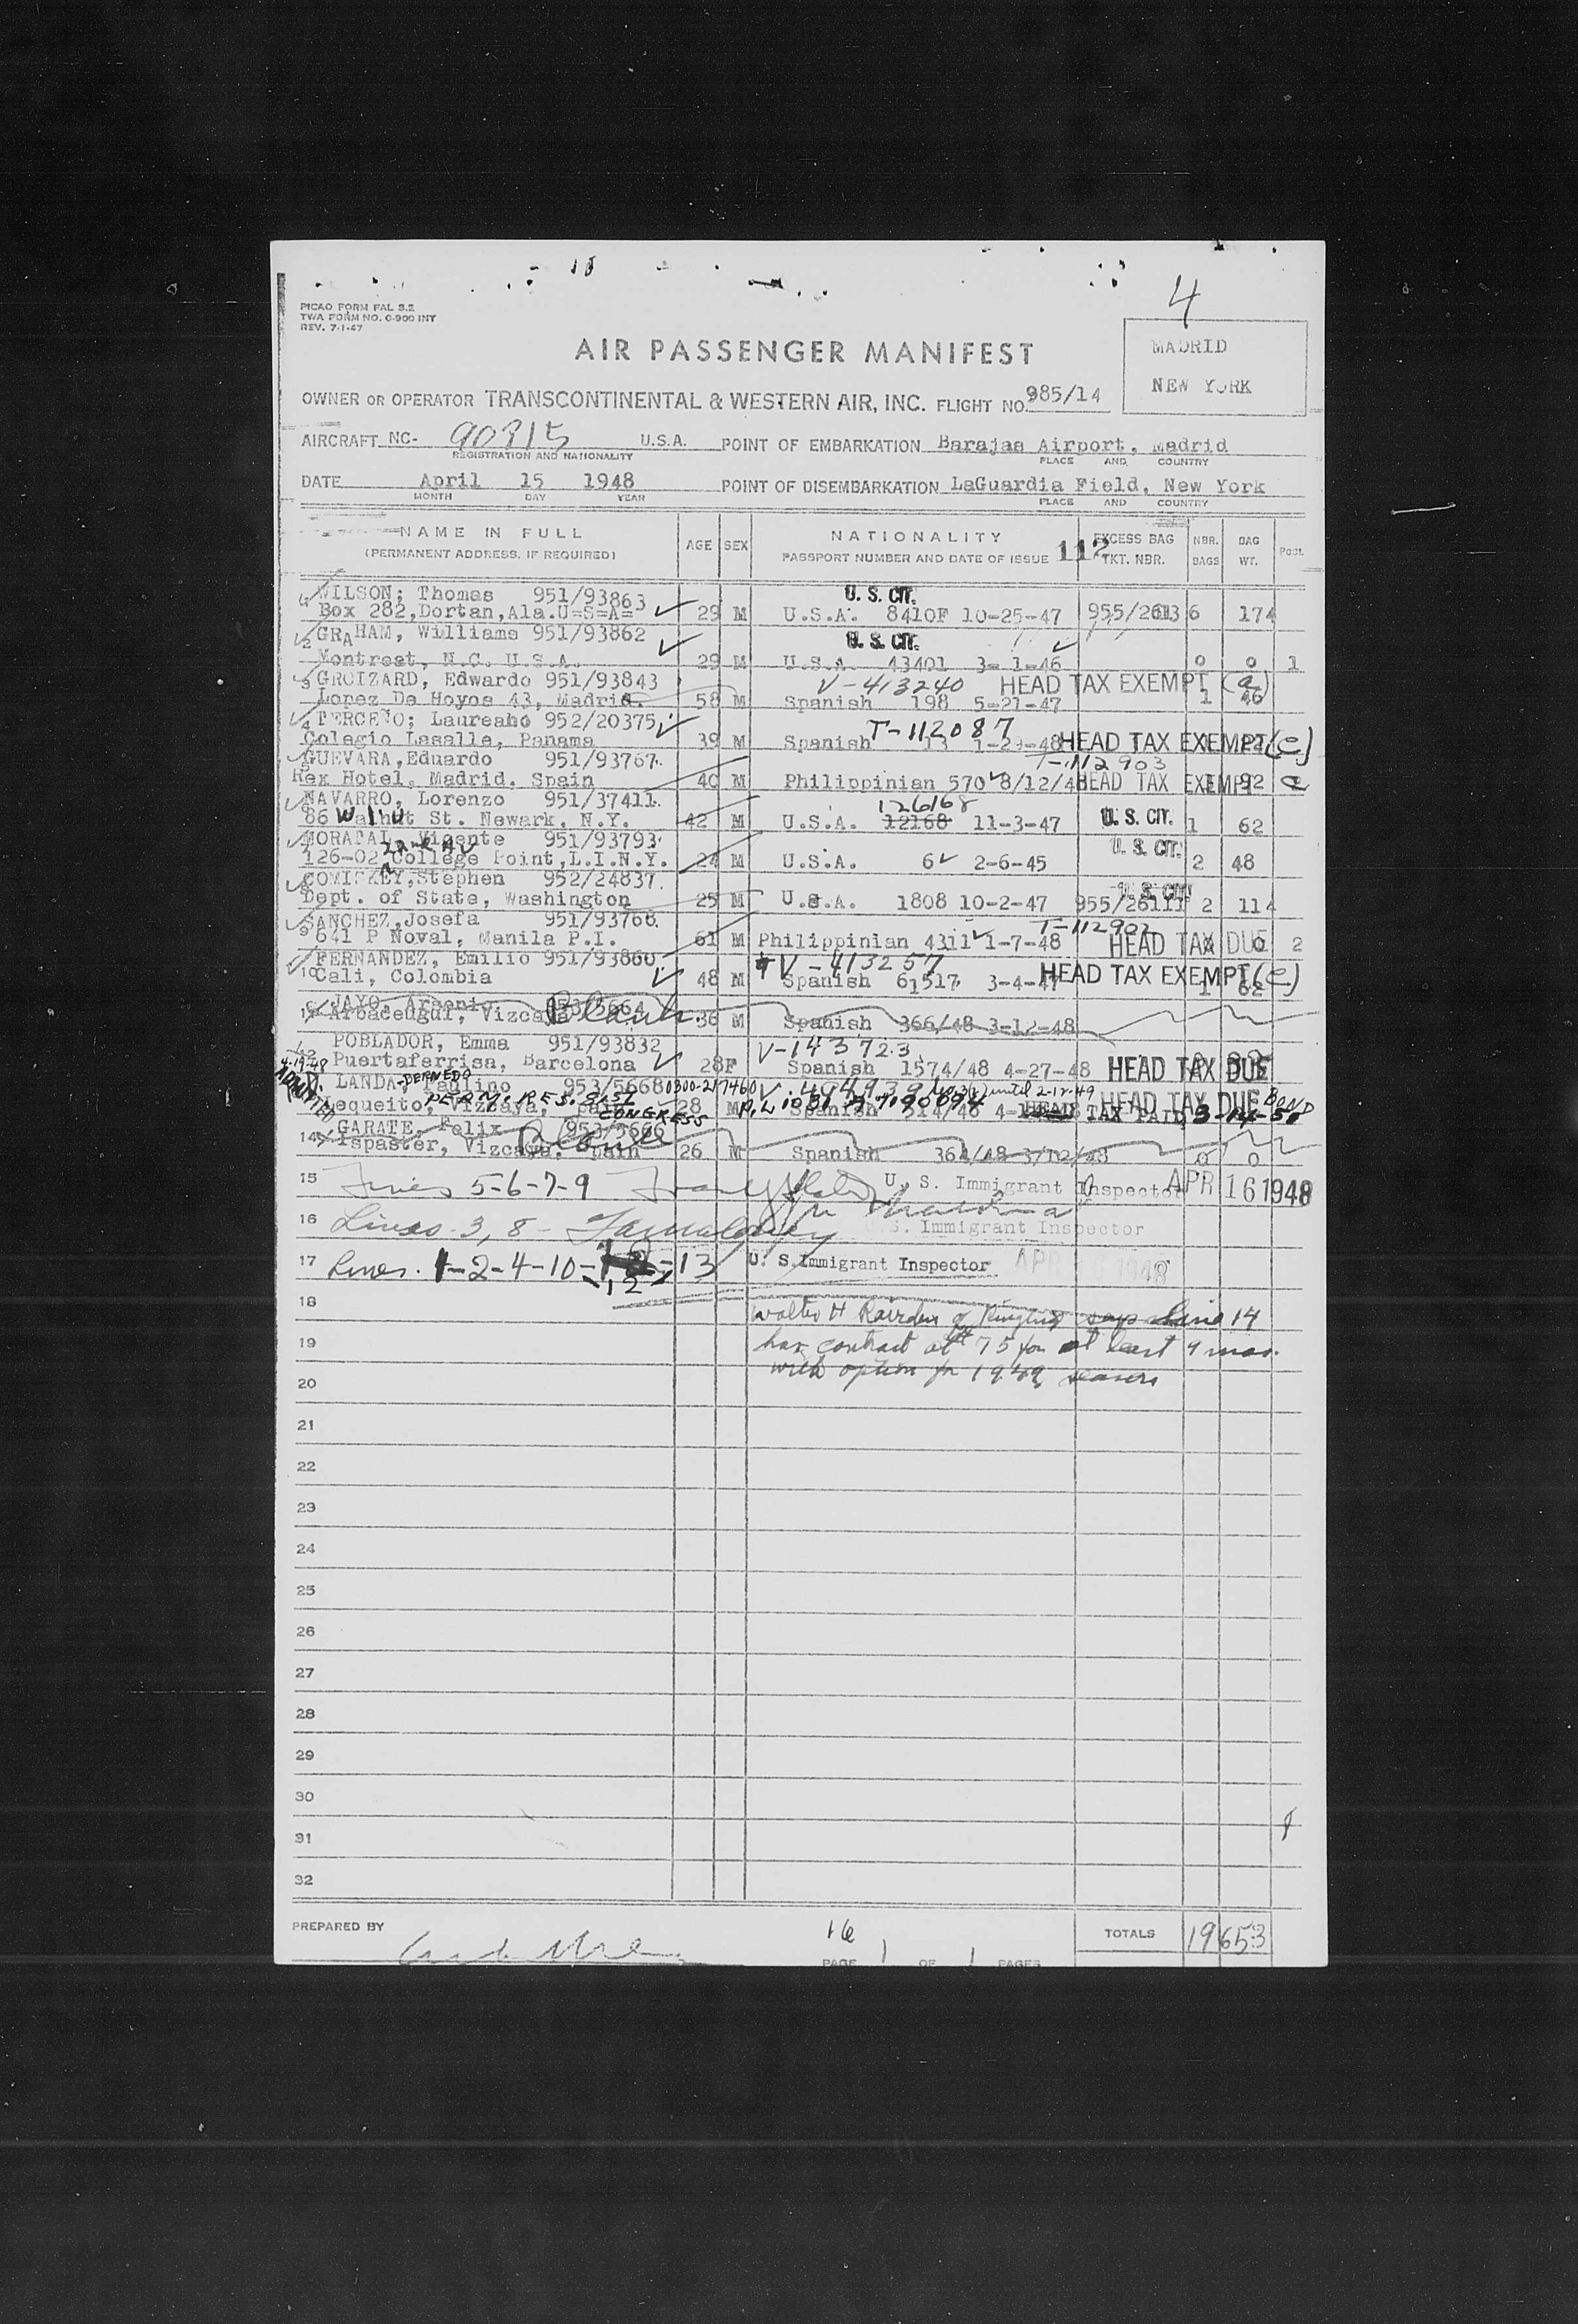 4
PICAO FORM FAL 3.2
TWA FORM NO. O-900 INT
REV. 7-1-47
AIR PASSENGER MANIFEST
MADRID
NEW YORK
OWNER OR OPERATOR TRANSCONTINENTAL & WESTERN AIR, INC. FLIGHT NO. 985/14
AIRCRAFT NC- 90815 U.S.A. POINT OF EMBARKATION Barajas Airport, Madrid
REGISTRATION AND NATIONALITY PLACE AND COUNTRY
DATE April 15 1948 POINT OF DISEMBARKATION LaGuardia Field, New York
MONTH DAY YEAR PLACE AND COUNTRY
NAME IN FULL AGE SEX NATIONALITY EXCESS BAG NBR. BAG POOL
(PERMANENT ADDRESS, IF REQUIRED) PASSPORT NUMBER AND DATE OF ISSUE 112 TKT. NBR. BAGS WT.
WILSON; Thomas 951/93863 U. S. CIT.
Box 282,Dortan,Ala.U=S=A= 29 M U.S.A. 8410F 10-25-47 955/2613 6 174
2 GRAHAM, Williams 951/93862 U. S. CIT.
Montreat, N.C. U.S.A. 29 M U.S.A. 43401 3-1-46 0 0 1
3 GROIZARD, Edwardo 951/93843 V-413240 HEAD TAX EXEMPT (a)
Lopez De Hoyos 43, Madrid. 58 M Spanish 198 5-21-47 1 46
4 TERCENO; Laureano 952/20375 T-112087
Colegio Lasalle, Panama 39 M Spanish 13 1-29-48 HEAD TAX EXEMPT (e)
5 GUEVARA,Eduardo 951/93767. T-112903
Rex Hotel, Madrid. Spain 40 M Philippinian 570 8/12/4 HEAD TAX EXEMPT e
NAVARRO, Lorenzo 951/37411. 126168
86 Walnut St. Newark, N.Y. 42 M U.S.A. 12168 11-3-47 U. S. CIT. 1 62
MORATAL, Vicente 951/93793
126-02 College Point,L.I.N.Y. 24 M U.S.A. 6 2-6-45 U. S. CIT. 2 48
COMISKEY,Stephen 952/24837.
Dept. of State, Washington 25 M U.S.A. 1808 10-2-47 U. S. CIT 2 114
9 SANCHEZ,Josefa 951/93768. T-112902
641 P Noval, Manila P.I. 61 M Philippinian 4311 1-7-48 HEAD TAX DUE 0 2
10 FERNANDEZ, Emilio 951/93860 V-413257
Cali, Colombia 48 M Spanish 61517 3-4-47 HEAD TAX EXEMPT (e)
JAYO, Arsenio 953/5664
Arbacegui, Vizcaya 36 M Spanish 366/48 3-12-48
POBLADOR, Emma 951/93832 V-143723
4-19-48 Puertaferrisa, Barcelona 28F Spanish 1574/48 4-27-48 HEAD TAX DUE
ADMITTED LANDA-BERNEDO Paulino 953/5668 0300-217460 until 2-12-49 HEAD TAX DUE BOND
PERM. RES. 81ST CONGRESS
Lequeito, Vizcaya, Spain 28 M Spanish 314/48 HEAD TAX PAID 3-14-50
GARATE, Felix 953/5666
14 Ispaster, Vizcaya, Spain 26 M Spanish 364/48 3/12/48 0 0
15 Lines 5-6-7-9 U. S. Immigrant Inspector APR 16 1948
16 Lines 3, 8 - U. S. Immigrant Inspector
17 Lines. 1-2-4-10-12-13 U. S. Immigrant Inspector APR 1948
18 Walter H of Ringling says Line 14
19 has contract at 75 for at least 9 mos.
20 with option for 1949 season
21
22
23
24
25
26
27
28
29
30
31
32
PREPARED BY 16 TOTALS 19 653
PAGE 1 OF 1 PAGES